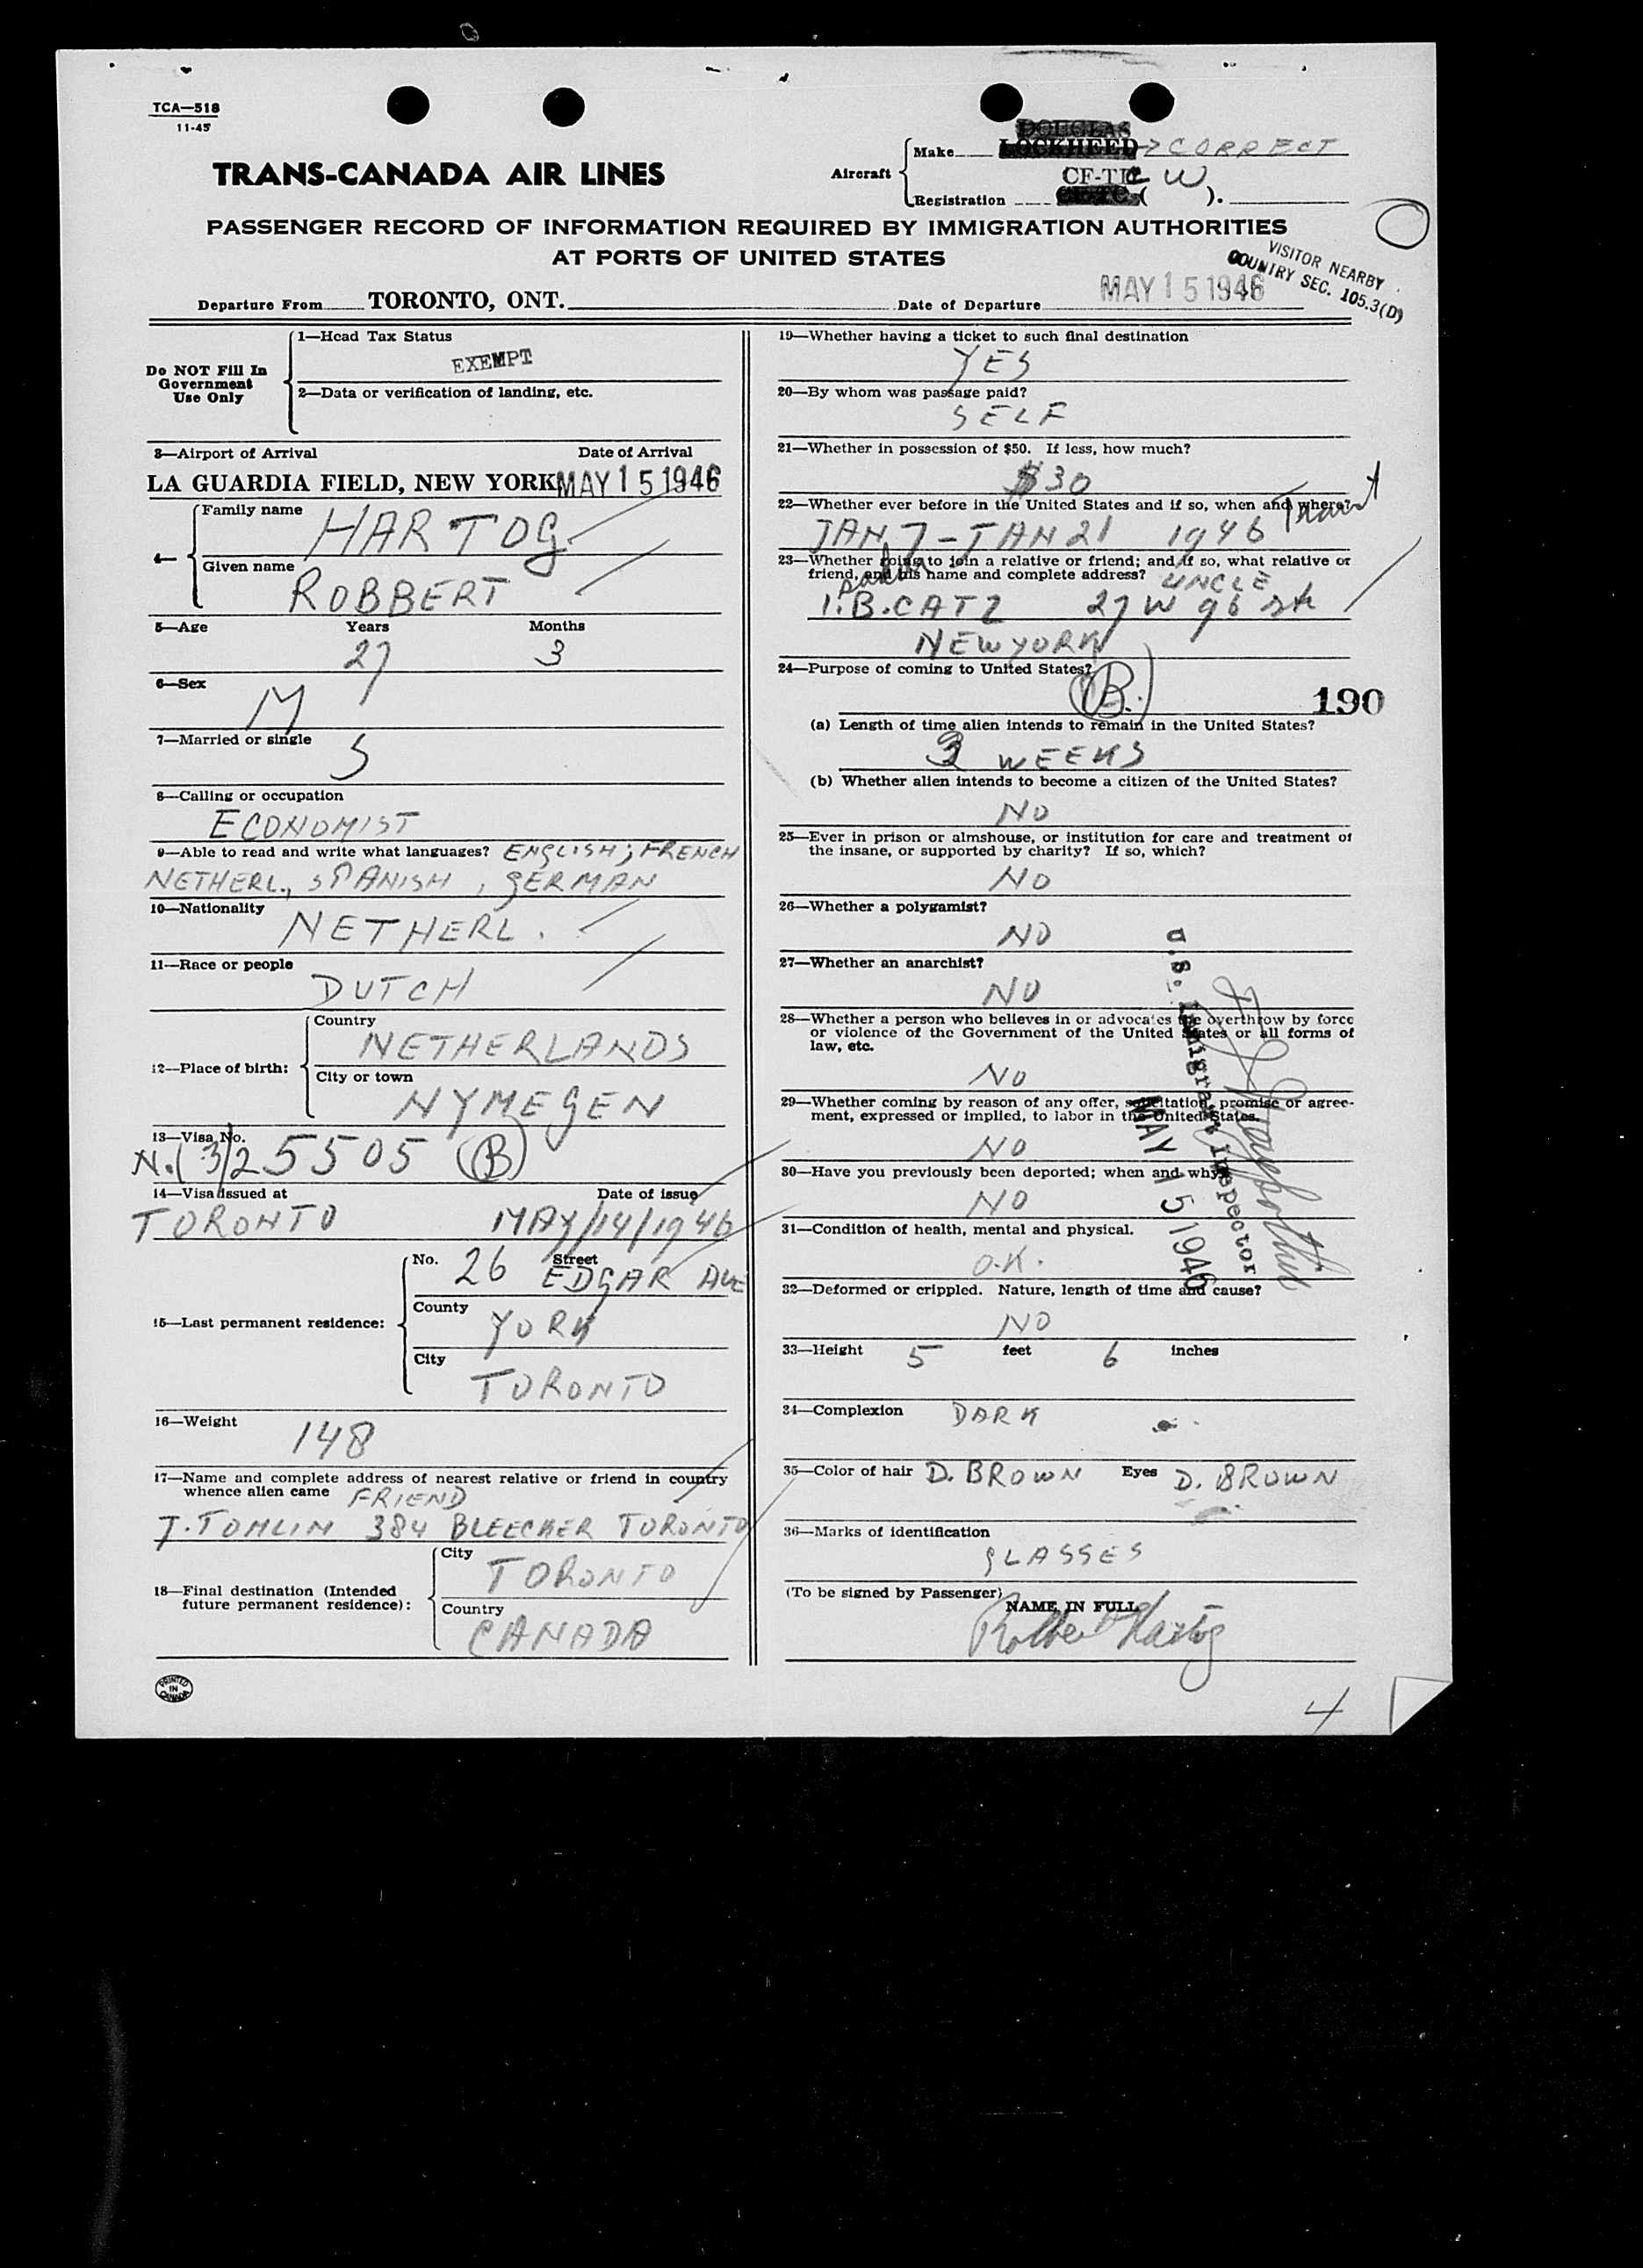 TCA—518
11-45
TRANS-CANADA AIR LINES
Aircraft
Make
DOUGLAS
LOCKHEED → CORRECT
Registration
CF-T W
( ).
PASSENGER RECORD OF INFORMATION REQUIRED BY IMMIGRATION AUTHORITIES
AT PORTS OF UNITED STATES
VISITOR NEARBY
COUNTRY SEC. 105.3(D)
Departure From TORONTO, ONT. Date of Departure MAY 15 1946
Do NOT Fill In
Government
Use Only
1—Head Tax Status
EXEMPT
2—Data or verification of landing, etc.
3—Airport of Arrival Date of Arrival
LA GUARDIA FIELD, NEW YORK MAY 15 1946
4—
Family name
HARTOG
Given name
ROBBERT
5—Age Years Months
27 3
6—Sex
M
7—Married or single
S
8—Calling or occupation
ECONOMIST
9—Able to read and write what languages? ENGLISH; FRENCH
NETHERL., SPANISH, GERMAN
10—Nationality
NETHERL.
11—Race or people
DUTCH
12—Place of birth:
Country
NETHERLANDS
City or town
NYMEGEN
13—Visa No.
N.(3)/25505 (B)
14—Visa issued at Date of issue
TORONTO MAY/14/1946
15—Last permanent residence:
No. Street
26 EDGAR AVE
County
YORK
City
TORONTO
16—Weight
148
17—Name and complete address of nearest relative or friend in country
whence alien came FRIEND
J. TOMLIN 384 BLEECKER TORONTO
18—Final destination (Intended
future permanent residence):
City
TORONTO
Country
CANADA
PRINTED
IN
CANADA
19—Whether having a ticket to such final destination
YES
20—By whom was passage paid?
SELF
21—Whether in possession of $50. If less, how much?
$30
22—Whether ever before in the United States and if so, when and where?
JAN 7 - JAN 21 1946 Transit
23—Whether going to join a relative or friend; and if so, what relative or
friend, and his name and complete address? UNCLE
I.B. CATZ 27 W 96 str
NEW YORK
24—Purpose of coming to United States?
(B.)
190
(a) Length of time alien intends to remain in the United States?
3 WEEKS
(b) Whether alien intends to become a citizen of the United States?
NO
25—Ever in prison or almshouse, or institution for care and treatment of
the insane, or supported by charity? If so, which?
NO
26—Whether a polygamist?
NO
27—Whether an anarchist?
NO
28—Whether a person who believes in or advocates the overthrow by force
or violence of the Government of the United States or all forms of
law, etc.
NO
29—Whether coming by reason of any offer, solicitation, promise or agree-
ment, expressed or implied, to labor in the United States.
NO
30—Have you previously been deported; when and why?
NO
31—Condition of health, mental and physical.
O.K.
32—Deformed or crippled. Nature, length of time and cause?
NO
U.S. Immigrant Inspector
MAY 15 1946
33—Height 5 feet 6 inches
34—Complexion DARK
35—Color of hair D. BROWN Eyes D. BROWN
36—Marks of identification
GLASSES
(To be signed by Passenger)
NAME IN FULL
Robbert Hartog
4